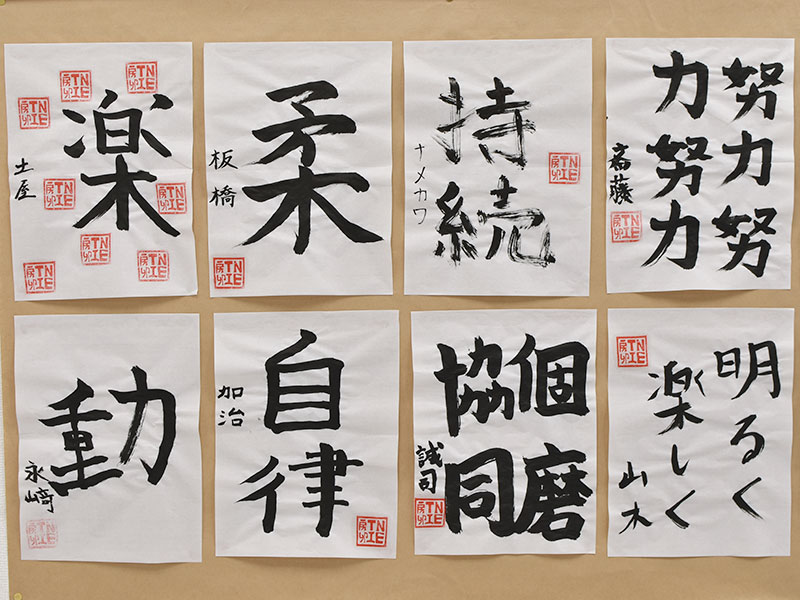 楽
土屋
柔
板橋
持続
ナメカワ
努力努
力努力
斎藤
動
永﨑
自律
加治
個磨
協同
誠司
明るく
楽しく
山木